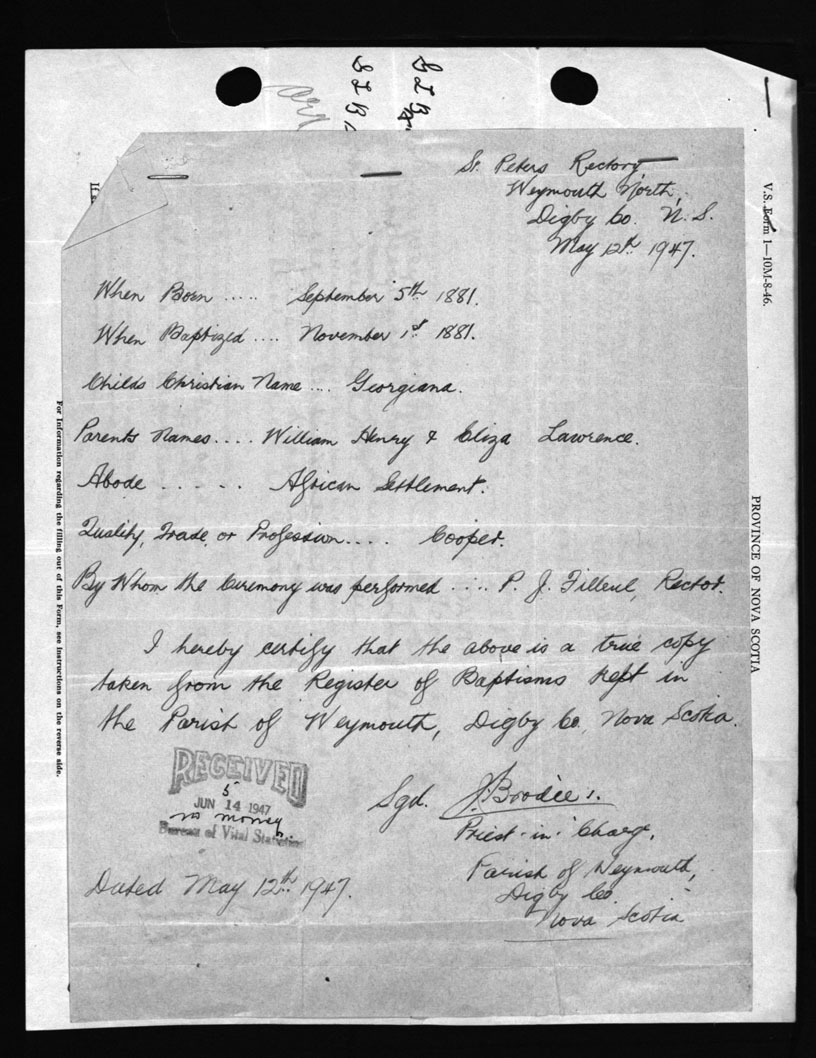 S L B
S L B
St. Peters Rectory
Weymouth North,
Digby Co. N. S.
May 12th 1947.
V.S. Form 1—10M-8-46.
When Born ..... September 5th 1881.
When Baptized .... November 1st 1881.
Childs Christian Name .... Georgiana.
Parents Names .... William Henry & Eliza Lawrence.
Abode ..... African Settlement.
Quality, Trade, or Profession .... Cooper.
By Whom the Ceremony was performed .... P. J. Filleul, Rector.
I hereby certify that the above is a true copy
taken from the Register of Baptisms kept in
the Parish of Weymouth, Digby Co, Nova Scotia.
RECEIVED
5
JUN 14 1947
no money
Bureau of Vital Statistics
Sgd.
Priest-in-Charge,
Parish of Weymouth,
Digby Co.
Nova Scotia
Dated May 12th 1947.
For Information regarding the filling out of this Form, see Instructions on the reverse side.
PROVINCE OF NOVA SCOTIA